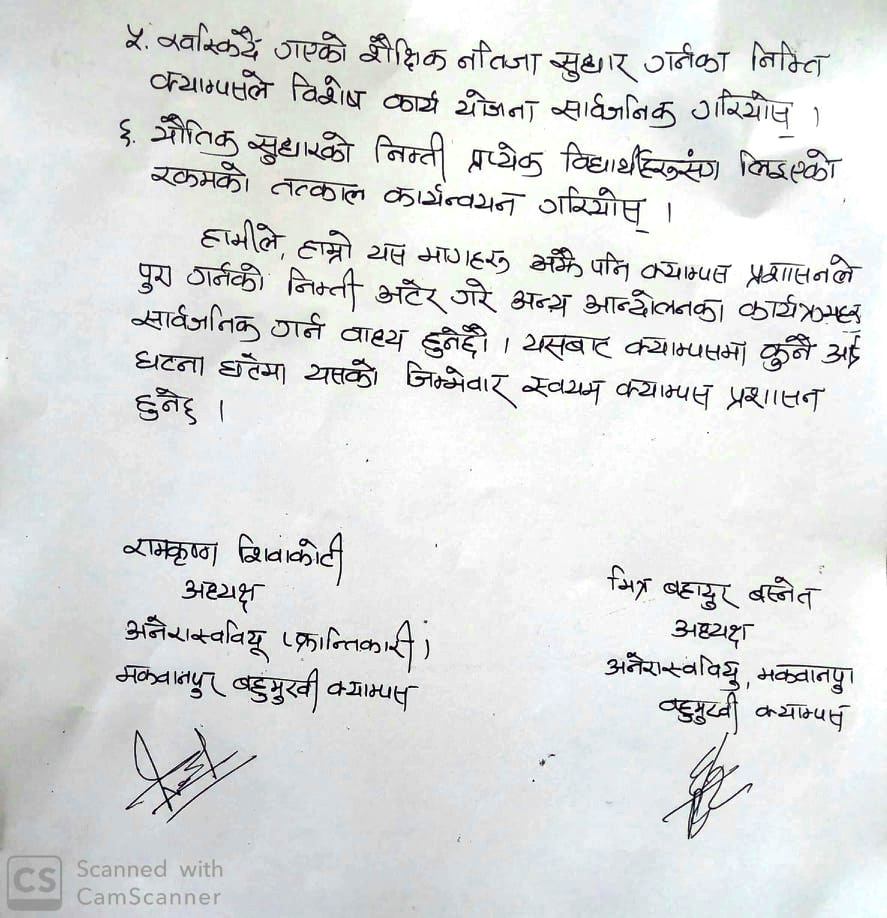 ५. खस्किदै गएको शैक्षिक नतिजा सुधार गर्नका निम्ति
क्याम्पसले विशेष कार्य योजना सार्वजनिक गरियोस् ।
६. भौतिक सुधारको निम्ती प्रत्येक विद्यार्थीहरुसंग लिइएको
रकमको तत्काल कार्यन्वयन गरियोस् ।
हामीले, हाम्रो यस मागहरु अझै पनि क्याम्पस प्रशासनले
पुरा गर्नको निम्ती अटेर गरे अन्य आन्दोलनका कार्यक्रमहरु
सार्वजनिक गर्न वाध्य हुनेछौ । यसबाट क्याम्पसमा कुनै
घटना घटेमा यसको जिम्मेवार स्वयम क्याम्पस प्रशासन
हुनेछ ।
रामकृष्ण शिवाकोटी
अध्यक्ष
अनेरास्ववियू (क्रान्तिकारी)
मकवानपुर बहुमुखी क्याम्पस
मित्र बहादुर बस्नेत
अध्यक्ष
अनेरास्ववियु, मकवानपुर
बहुमुखी क्याम्पस
CS Scanned with
CamScanner